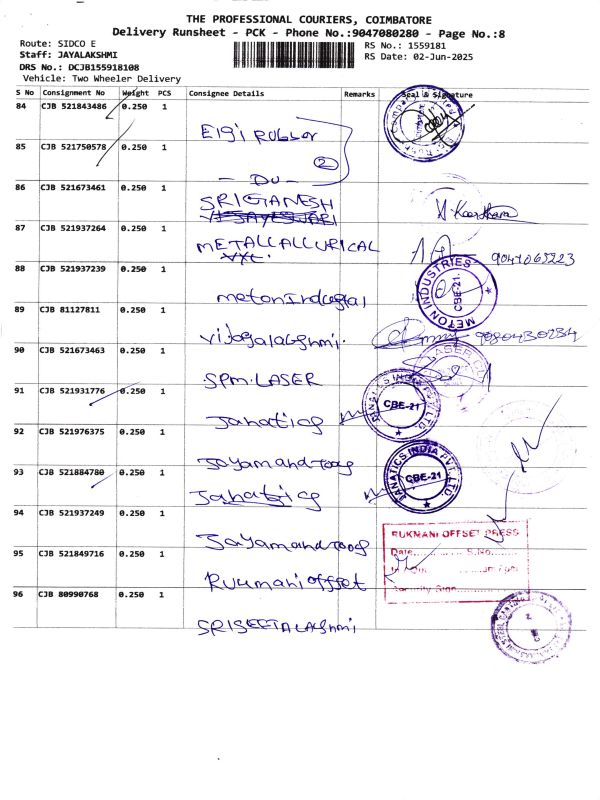 THE PROFESSIONAL COURIERS, COIMBATORE
Delivery Runsheet - PCK - Phone No.:9047080280 - Page No.:8
Route: SIDCO E
RS No.: 1559181
Staff: JAYALAKSHMI
RS Date: 02-Jun-2025
DRS No.: DCJB155918108
Vehicle: Two Wheeler Delivery
S No Consignment No Weight PCS Consignee Details Remarks Seal & Signature
84 CJB 521843486 0.250 1
Elgi Rubber
85 CJB 521750578 0.250 1
2
- Du -
86 CJB 521673461 0.250 1
SRIGANESH
87 CJB 521937264 0.250 1
METALLALLURICAL
9047065223
88 CJB 521937239 0.250 1
METON INDUSTRIES
CBE-21.
metonindustrial
89 CJB 81127811 0.250 1
vijayalakshmi.
9080430234
90 CJB 521673463 0.250 1
LASER
SPM.LASER
91 CJB 521931776 0.250 1
JANATICS INDIA PVT. LTD
CBE-21
Janatics
92 CJB 521976375 0.250 1
Jayamandtoos
93 CJB 521884780 0.250 1
JANATICS INDIA PVT. LTD
CBE-21
Janatics
94 CJB 521937249 0.250 1
RUKMANI OFFSET PRESS
Jayamandtoos
95 CJB 521849716 0.250 1
Date S.No.
Rukmani offset
Security Sign
96 CJB 80990768 0.250 1
SRISEETALAkshmi